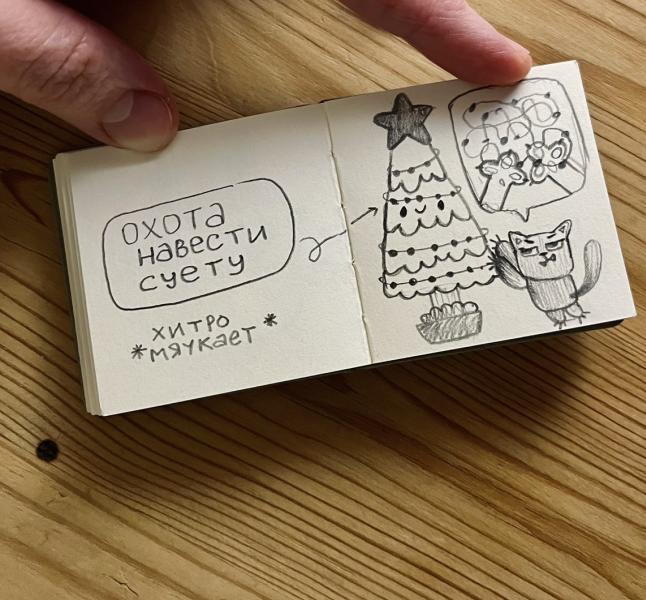 ОХОТА
НАВЕСТИ
СУЕТУ
ХИТРО
*МЯУКАЕТ*